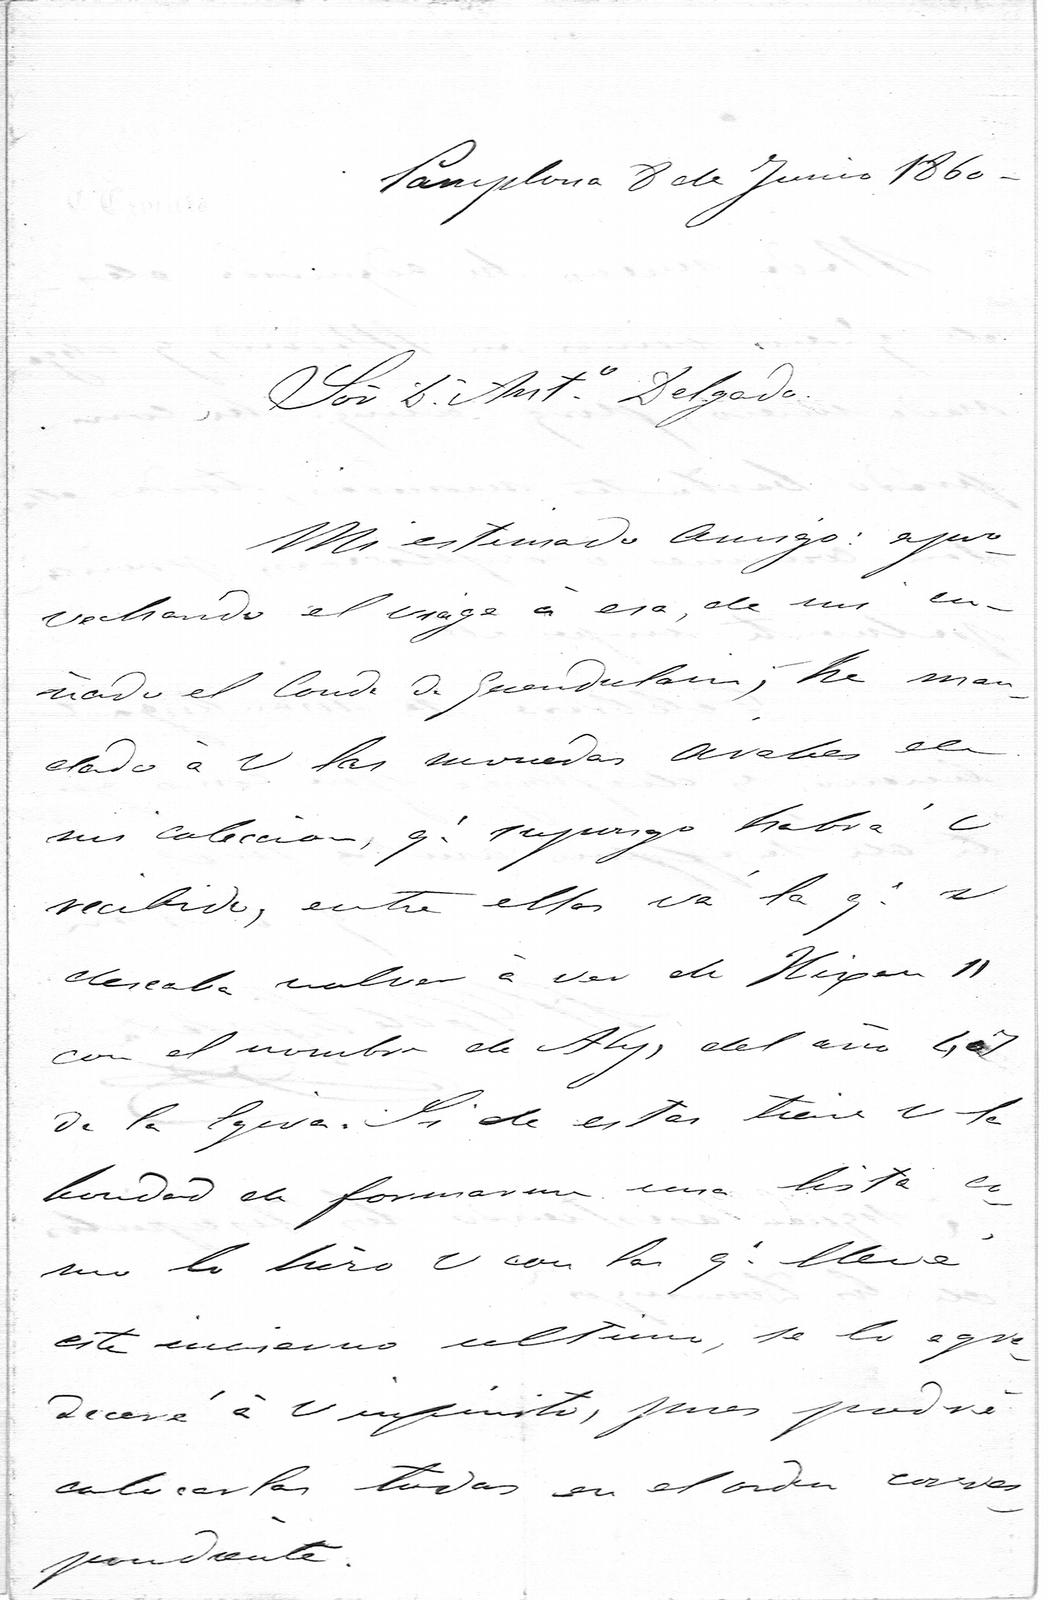 Pamplona 8 de Junio 1860-
Sór D. Antº. Delgado.
Mi estimado amigo: apro-
vechando el viage à esa, de mi cu-
ñado el Conde de Guendulain, he man-
dado à V las monedas árabes de
mi coleccion, q.e supongo habrá V
recibido, entre ellas vá la q.e V
deseaba volver à ver de Hixem II
con el nombre de Aly, del año
de la Egira. Si de estas tiene V la
bondad de formarme una lista co-
mo lo hizo V con las q.e llevé
este invierno ultimo, se lo agra-
deceré à V infinito, pues podré
colocarlas todas en el orden corres-
pondiente.